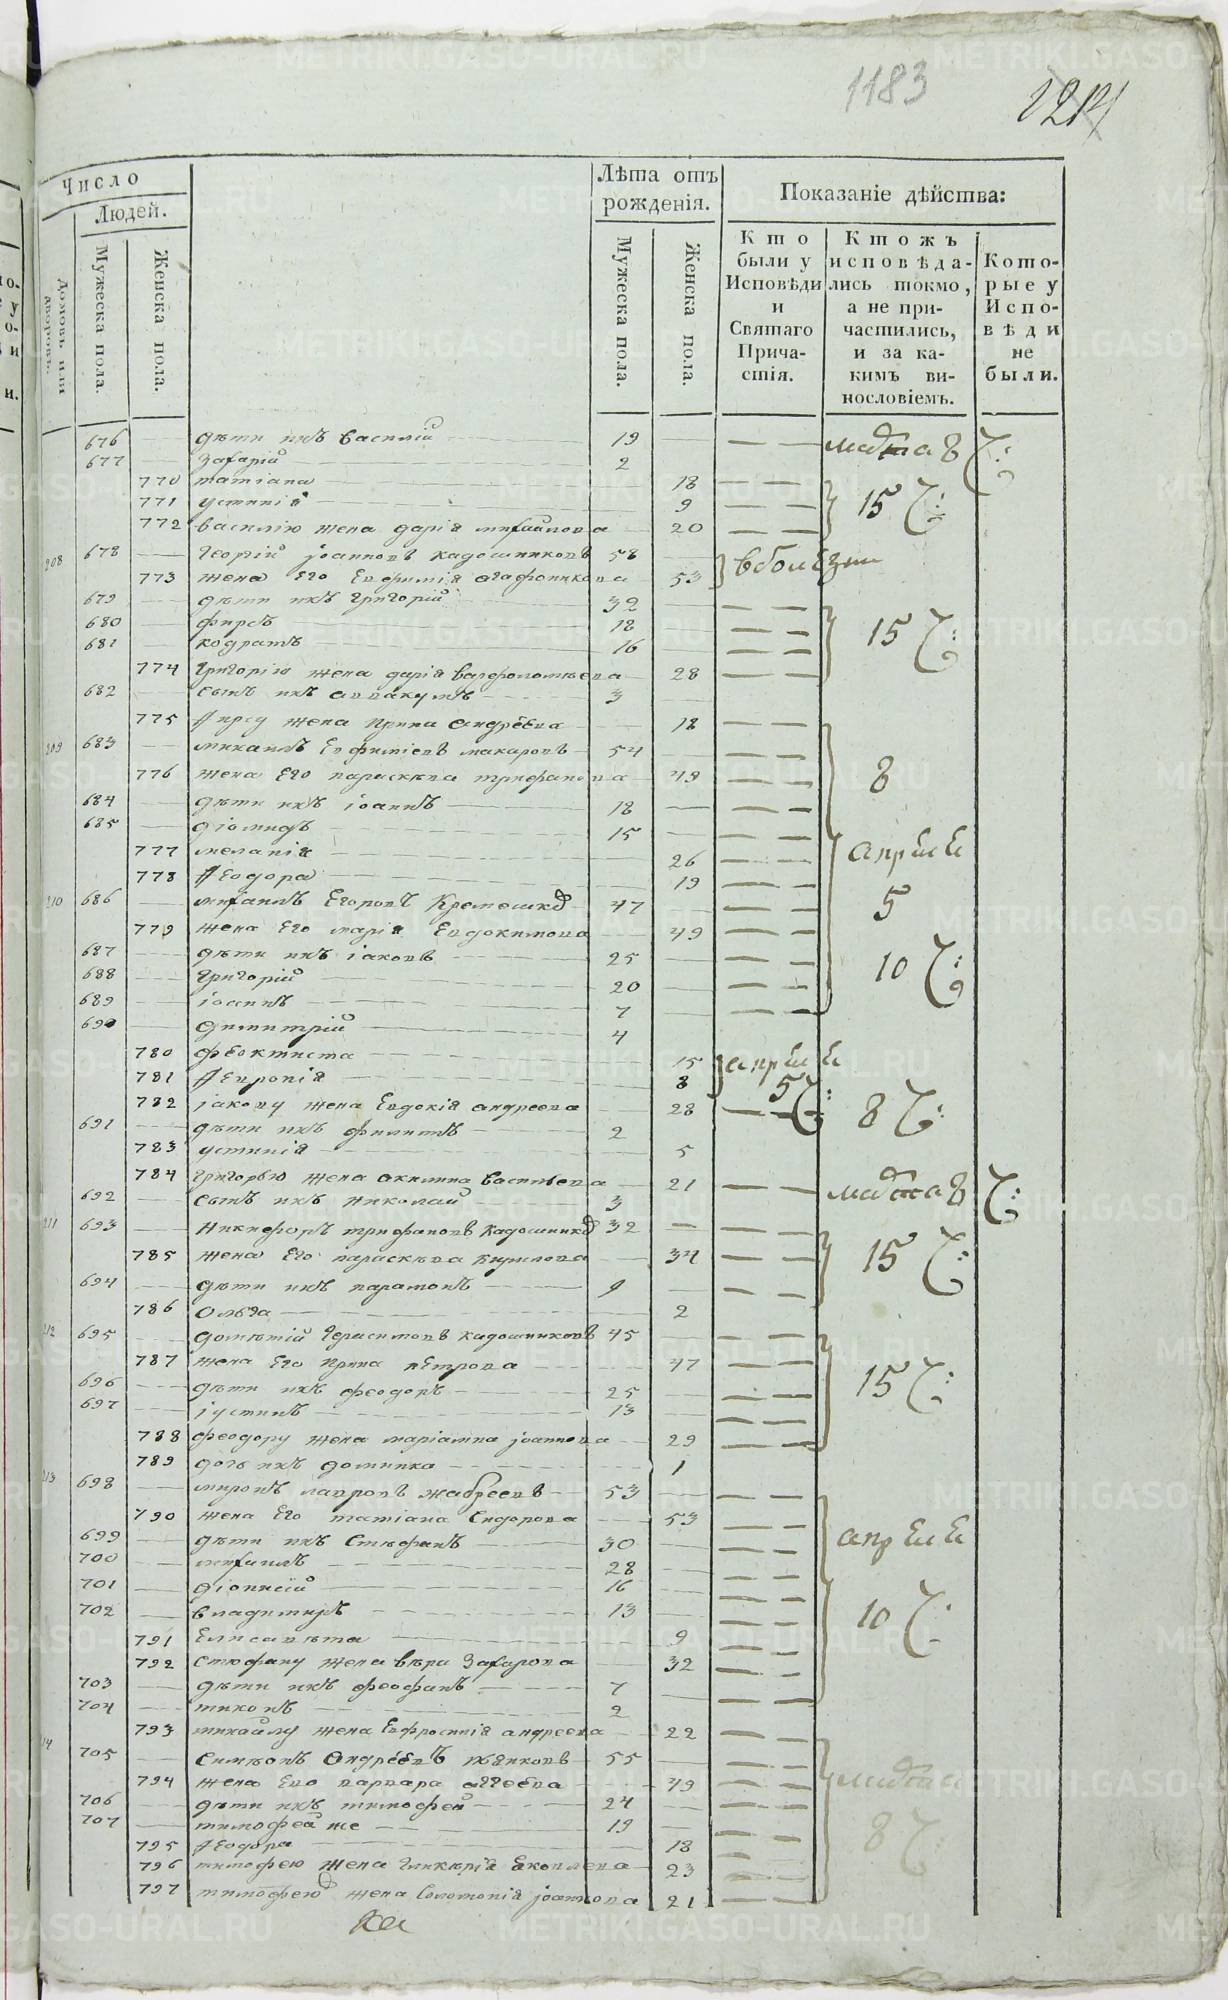 1183
1214
Число
Людей.
Домовъ или дворовъ.
Мужеска пола.
Женска пола.
Лѣта отъ рожденія.
Мужеска пола.
Женска пола.
Показаніе дѣйства:
Кто были у Исповѣди и Святаго Причастія.
Ктожъ исповѣдались токмо, а не причастились, и за какимъ винословіемъ.
Которые у Исповѣди не были.
676 дѣти ихъ василій 19 марта 8 Ч:
677 захарій 2
770 татіана 18
771 устинія 9 15 Ч:
772 василію жена дарія михайлова 20
208 678 Георгій іоанновъ кадошниковъ 58 в болѣзни
773 жена Его Евфимія агафоникова 53
679 дѣти ихъ григорій 32
680 фирсъ 18 15 Ч:
681 кодратъ 16
774 григорію жена дарія варфоломѣева 28
682 сынъ ихъ аввакумъ 3
775 фирсу жена Ирина андрѣева 18
209 683 михаилъ Евфиміевъ макаровъ 54
776 жена Его параскѣва трифанова 49 8
684 дѣти ихъ іоаннъ 18
685 діомидъ 15
777 меланія 26 апрѣля
778 Ѳеодора 19
210 686 михаилъ Егоровъ 47 5
779 жена Его марія Евдокимова 49
687 дѣти ихъ іаковъ 25
688 григорій 20 10 Ч:
689 іоаннъ 7
690 димитрій 4
780 феоктиста 15 апрѣля
781 Ѳевронія 8 5 Ч:
782 іакову жена Евдокія андреева 28 8 Ч:
691 дѣти ихъ филиппъ 2
783 устинія 5
784 григорью жена акилина васильева 21 марта 8 Ч:
692 сынъ ихъ николай 3
211 693 Никифоръ трифановъ кадошник 32
785 жена Его параскѣва кирилова 34 15 Ч:
694 дѣти ихъ парамонъ 9
786 Ольга 2
212 695 дометій Герасимовъ кадошниковъ 45
787 жена Его Ирина пЕтрова 47
696 дѣти ихъ феодоръ 25 15 Ч:
697 іустинъ 13
788 феодору жена маріамна іоаннова 29
789 дочь ихъ домника 1
213 698 миронъ лавровъ жабреевъ 53
790 жена Его татіана Сидорова 53
699 дѣти ихъ Стефанъ 30 апрѣля
700 михаилъ 28
701 діонисій 16
702 владимиръ 13 10 Ч:
791 Елисавѣта 9
792 стефану жена вѣра Захарова 32
703 дѣти ихъ феофанъ 7
704 тихонъ 2
793 михаилу жена Евфросинія андреева 22
14 705 Симеонъ Андрѣевъ 55
794 жена Его варвара аггеева 49 марта
706 дѣти ихъ тимофей 24
707 тимофей же 19 8 Ч
795 Ѳеодора 18
796 тимофею жена гликѣрія яковлева 23
797 тимофею жена Соломонія іоаннова 21